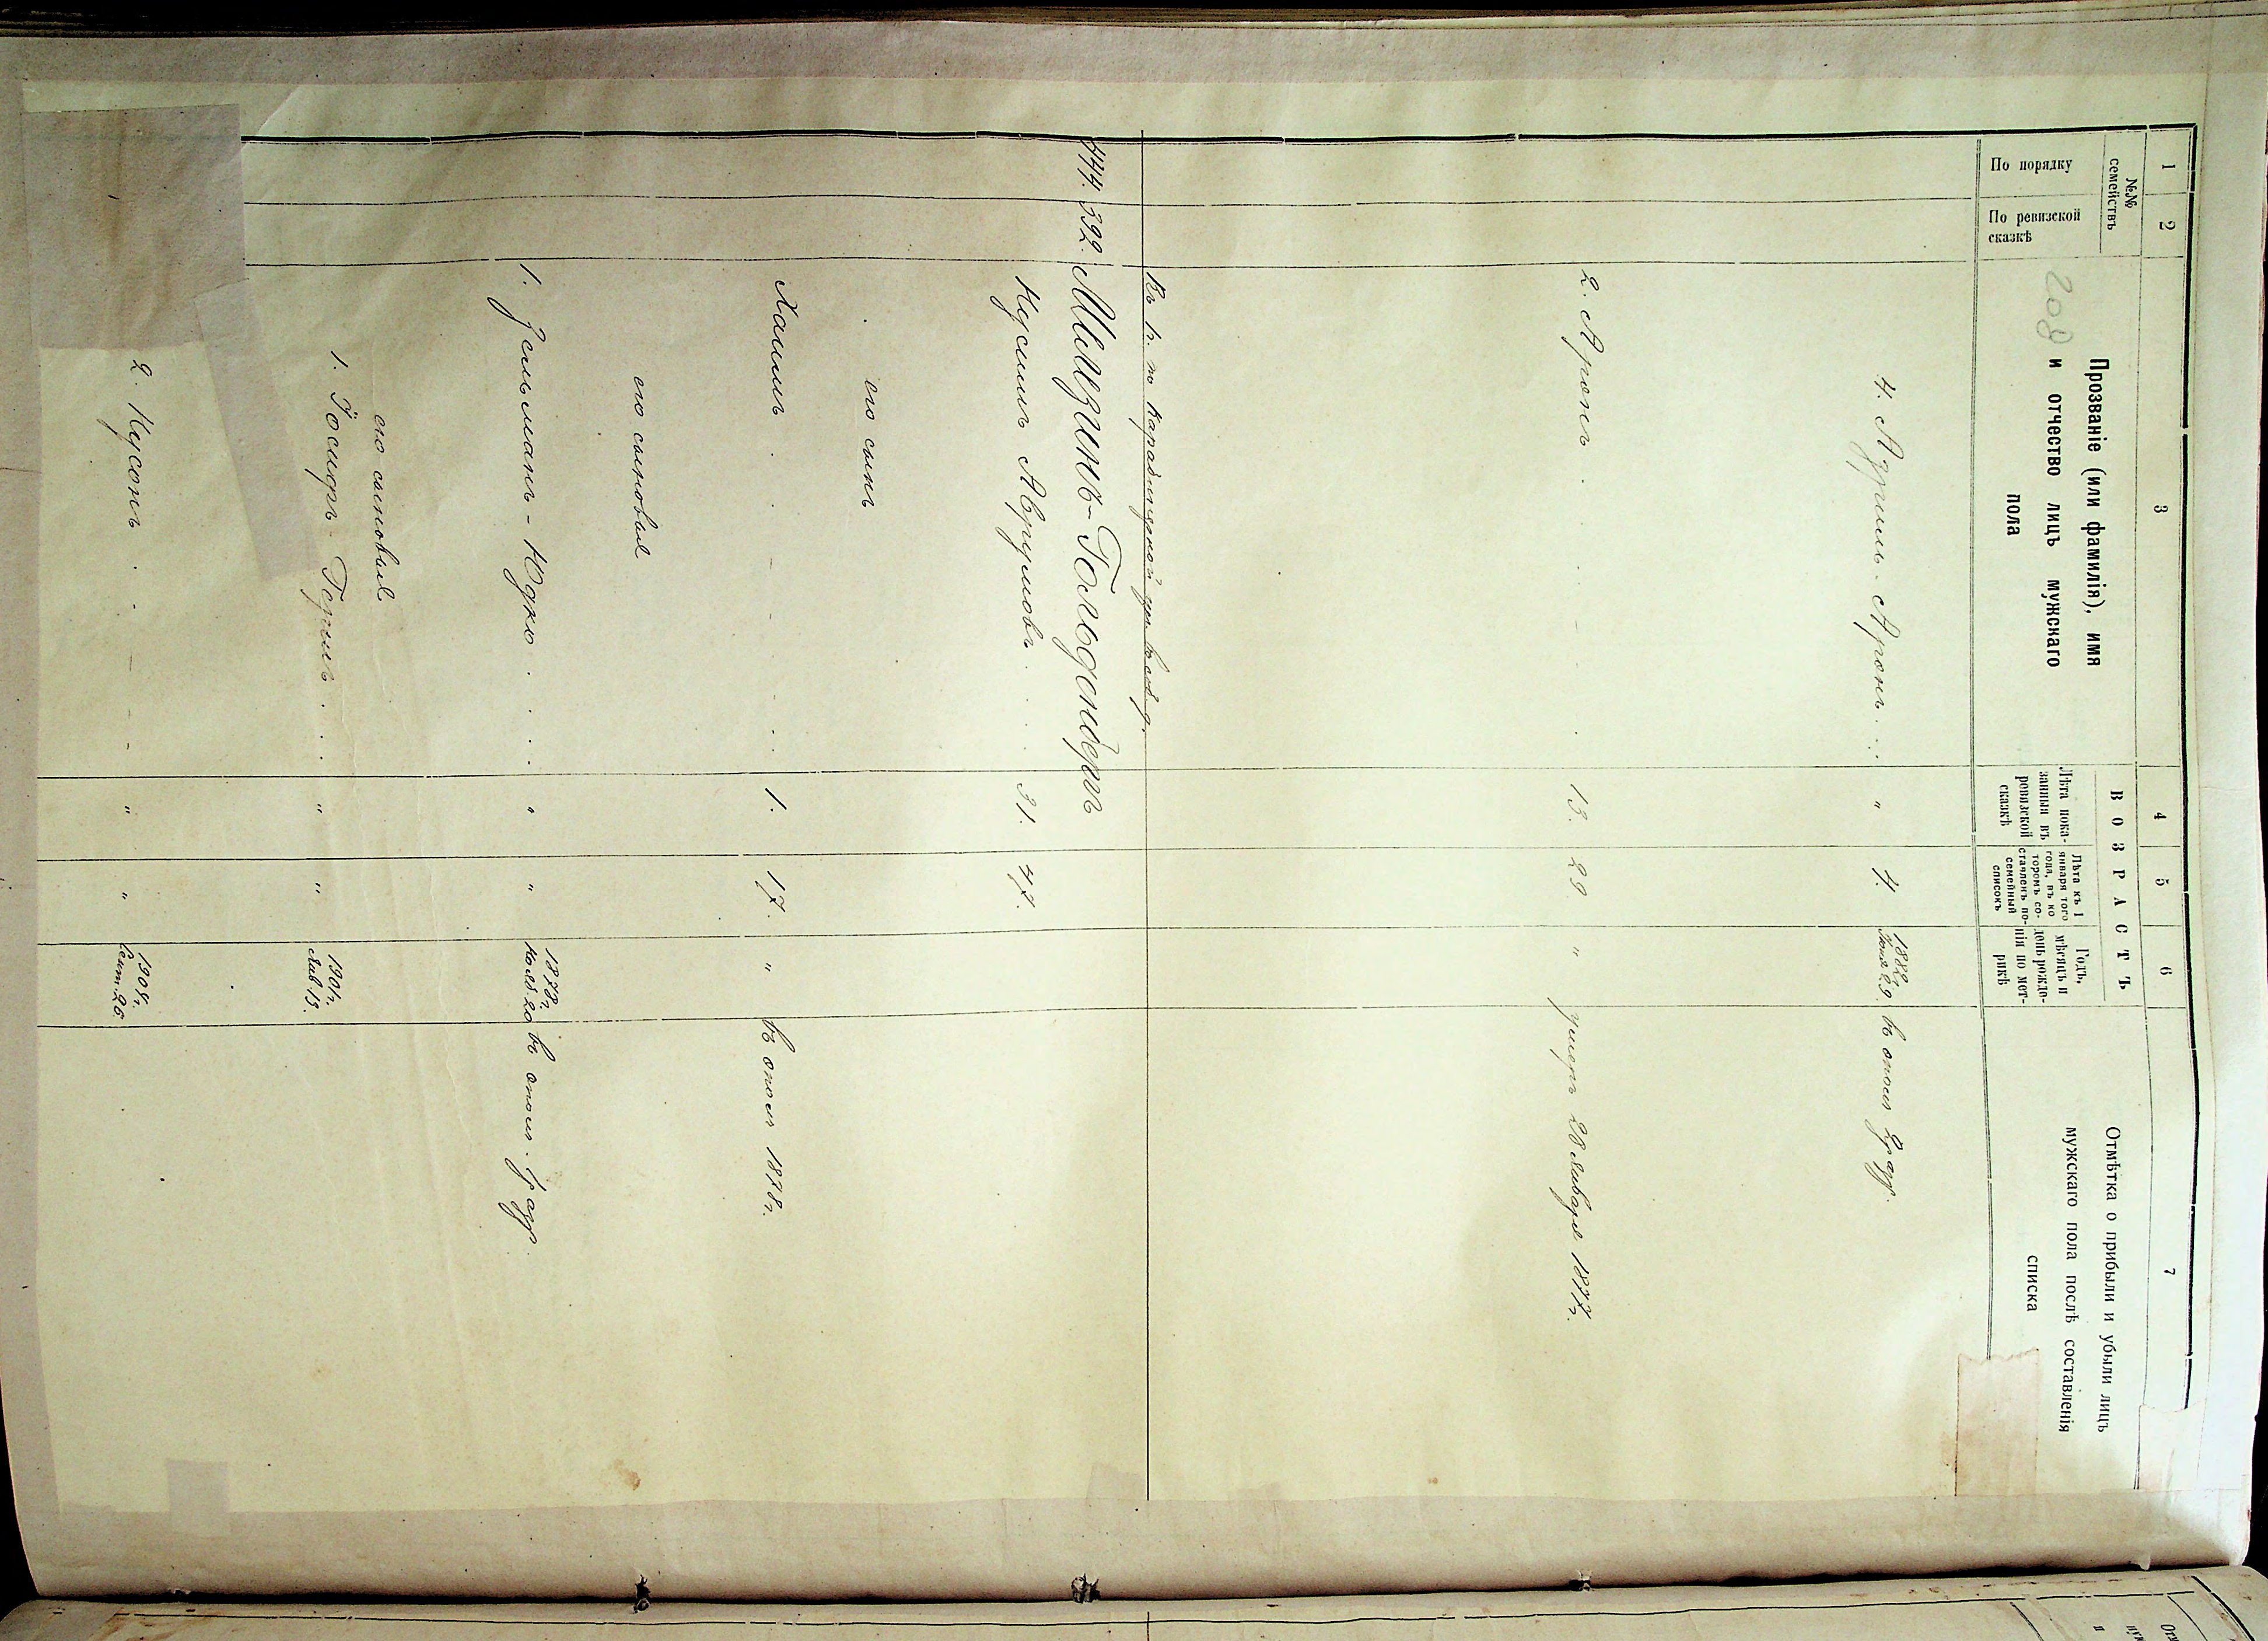 1 2 3 4 5 6 7
№№ семействъ
По порядку
По ревизской сказкѣ
Прозваніе (или фамилія), имя
и отчество лицъ мужскаго
пола
208
ВОЗРАСТЪ
Лѣта пока-
занныя въ
ревизской
сказкѣ
Лѣта къ 1
января того
года, въ ко
торомъ со-
ставленъ по-
семейный
списокъ
Годъ,
мѣсяцъ и
день рожде-
нія по мет-
рикѣ
Отмѣтка о прибыли и убыли лицъ
мужскаго пола послѣ составленія
списка
4. Азриль-Аронъ . . . " 4. 1882г. 29 въ 2 разр.
2. Аронъ . . . . 13. 29 " умеръ 28 Января 1877г.
444. 392. Милезинъ-Гольденбергъ
Нусимъ Аврумовъ . . . 31. 47.
его сынъ
Хаимъ . . . . 1. 17. " въ 1878г.
его сыновья
1. Зельманъ-Юдко . . . . " " 1878г. Нояб. 20 въ 1 разр.
его сыновья
1. Іосифъ-Гершъ . . . " " 1901г. Янв. 13.
2. Нусонъ . . . . " " 1904г. Сент. 26